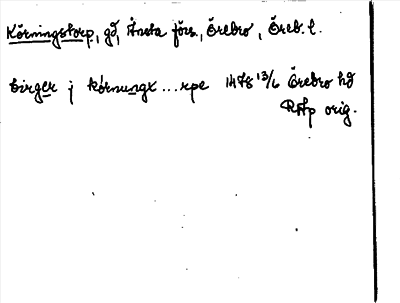 Körningstorp, gd, Ånsta förs., Örebro, Öreb. l.
birger j körnungx...rpe 1478 13/6 Örebro hd
RAp orig.